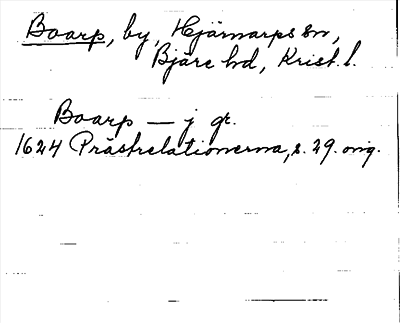 Boarp, by, Hjärnarps sn,
Bjäre hd, Krist. l.
Boarp — j gr.
1624 Prästrelationerna, s. 29. orig.